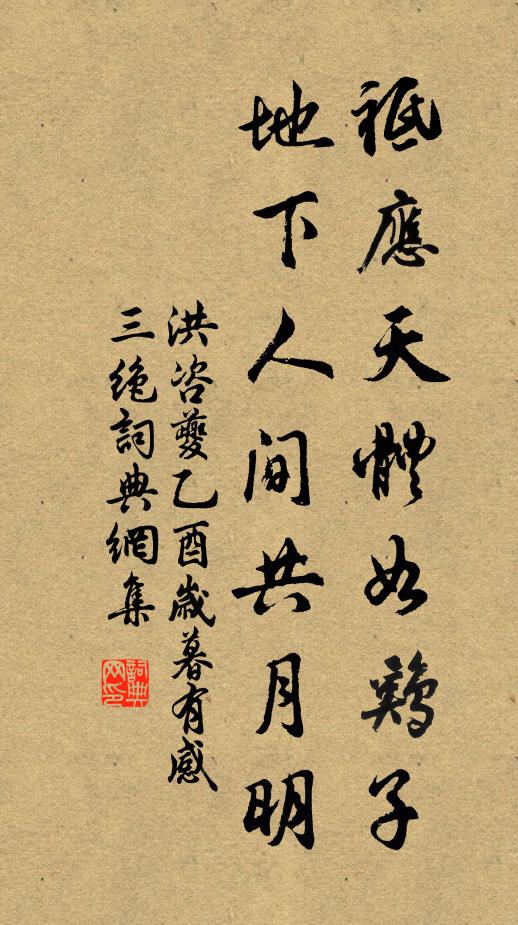 祗應天體如鷄子
地下人間共月明
洪咨夔乙酉歲暮有感
三绝詞典網集
詞典
网印